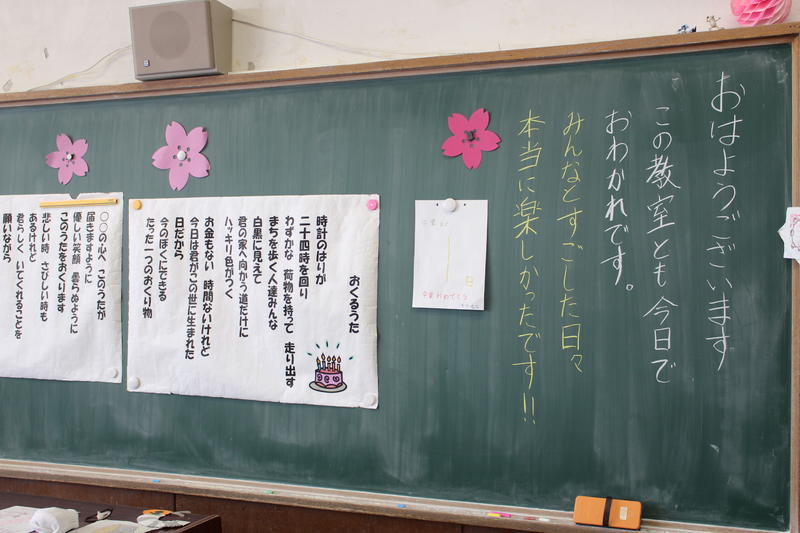 おはようございます
この教室とも今日で
おわかれです。
みんなとすごした日々
本当に楽しかったです!!
1
日
卒業おめでとう
おくるうた
時計のはりが
二十四時を回り
わずかな 荷物を持って 走り出す
まちを歩く人達みんな
白黒に見えて
君の家へ向かう道だけに
ハッキリ色がつく
お金もない 時間ないけれど
今日は君がこの世に生まれた
日だから
今のぼくにできる
たった一つのおくり物
〇〇の心へ このうたが
届きますように
優しい笑顔 曇らぬように
このうたをおくります
悲しい時 さびしい時も
あるけれど
君らしく いてくれることを
願いながら